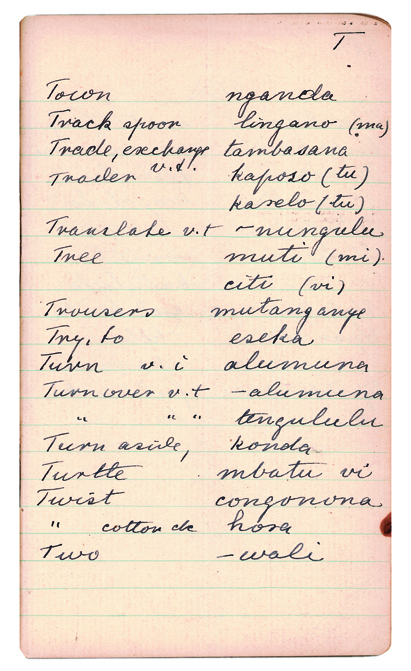 T
Town nganda
Track spoor lingano (ma)
Trade, exchange v.t. tambasana
Trader kaposo (tu)
kavelo (tu)
Translate v.t – nungulu
Tree muti (mi)
citi (vi)
Trousers mutanganye
Try, to eseka
Turn v. i alumuna
Turn over v.t – alumuna
" " " tengululu
Turn aside, konda
Turtle mbatu vi
Twist congonona
" cotton etc hosa
Two – wali